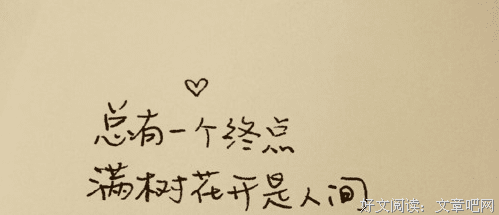 总有一个终点
满树花开是人间
好文阅读：文章吧网